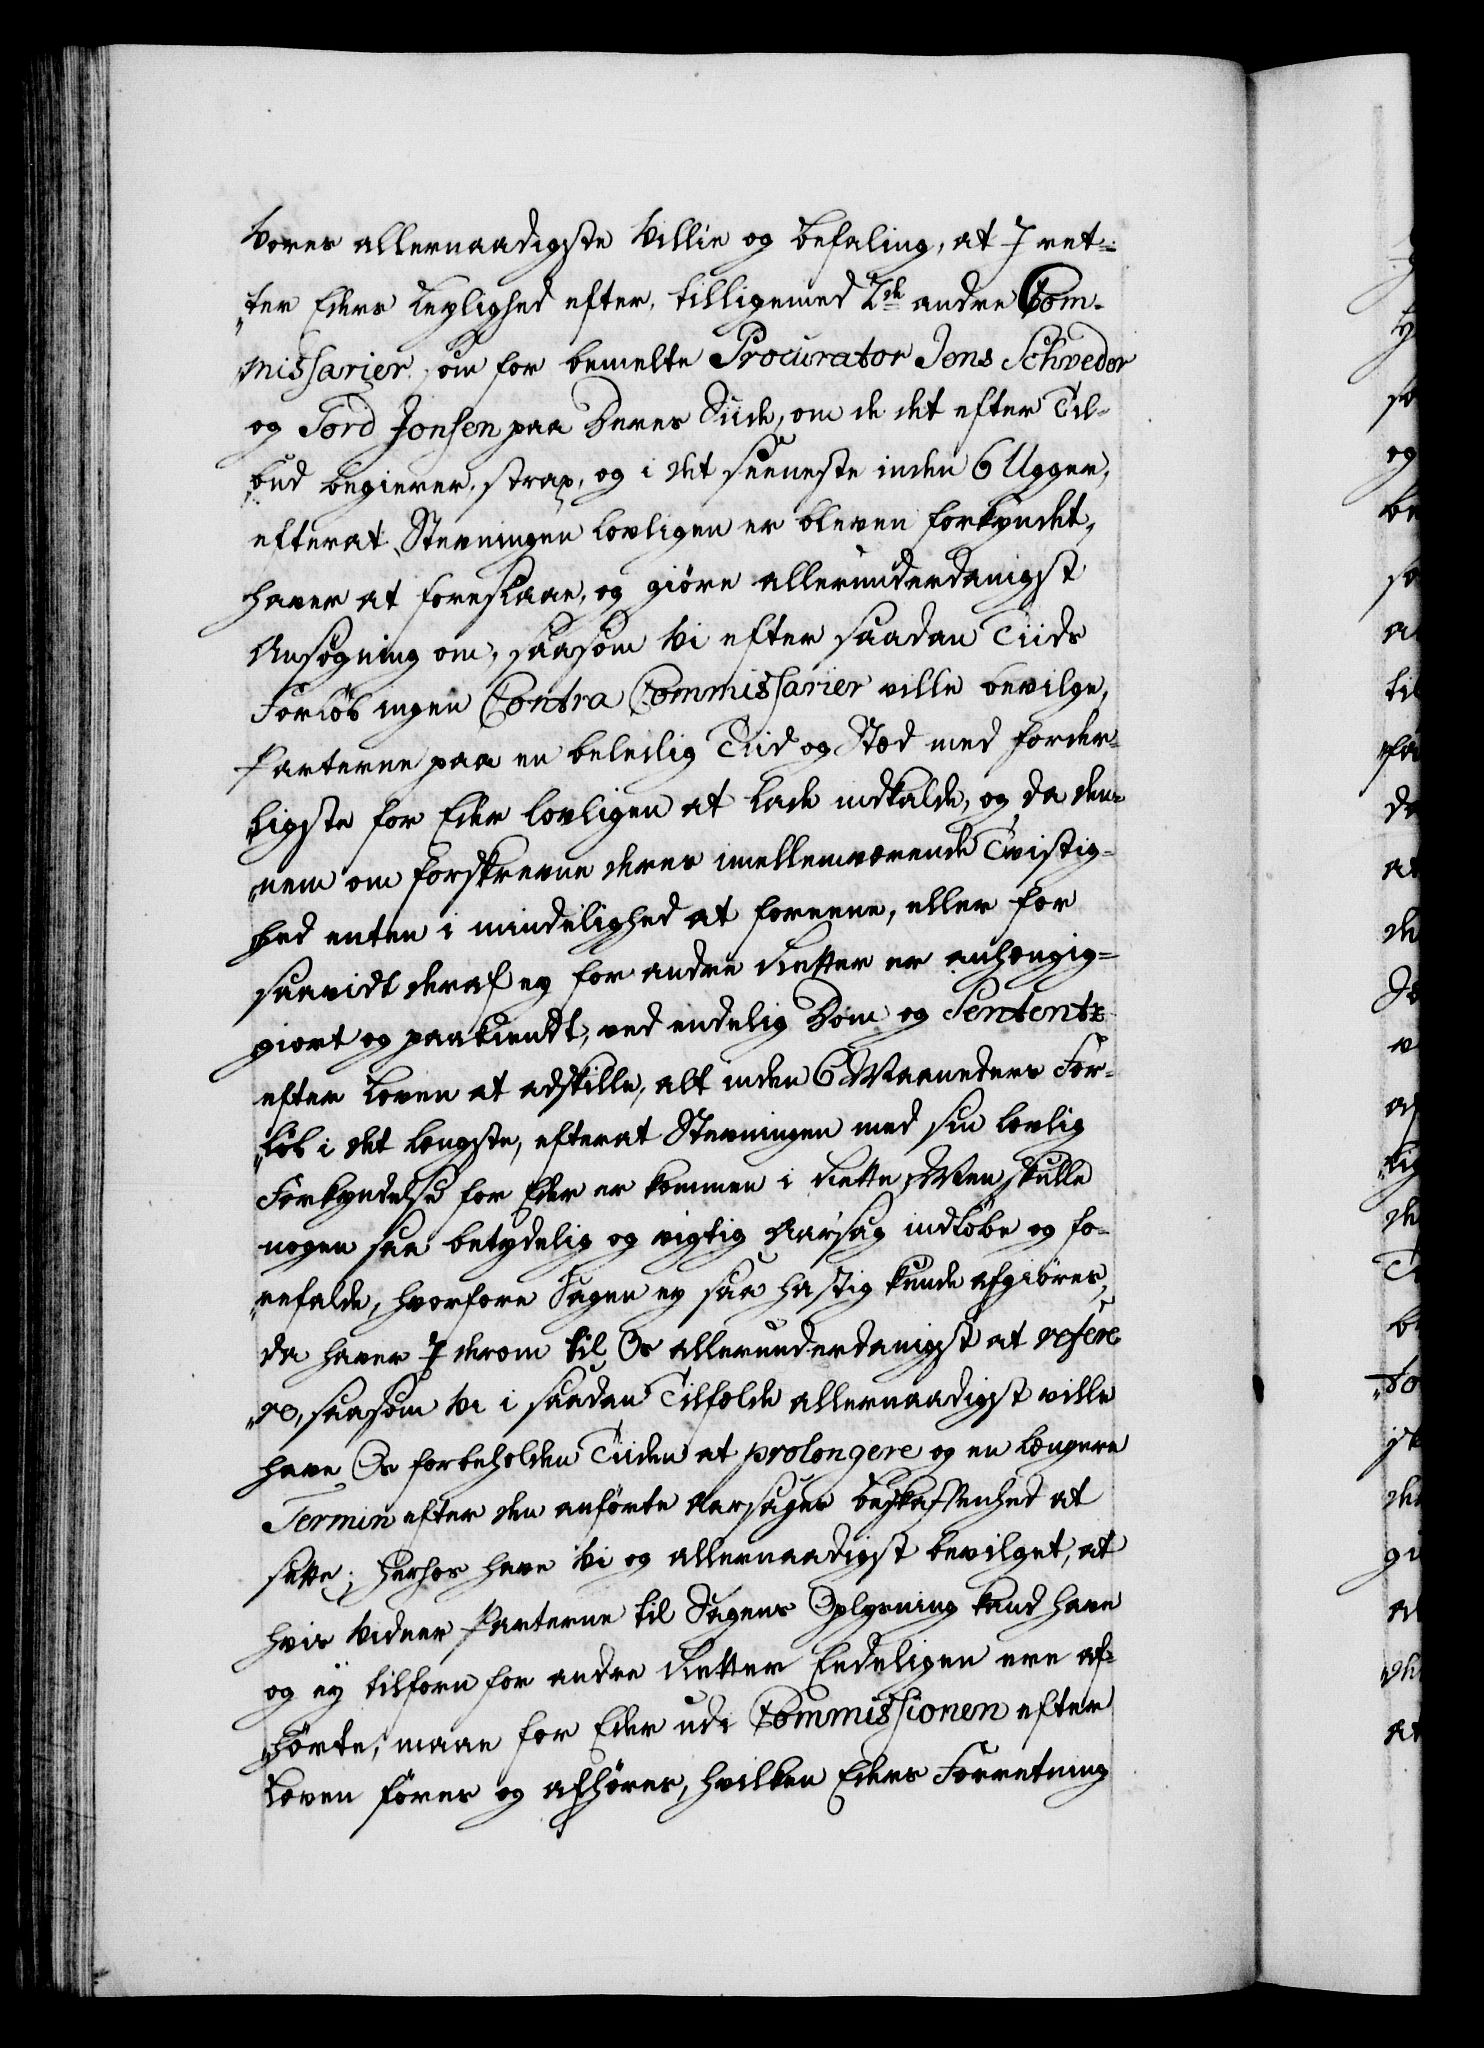 Vores allernaadigste Villie og befaling, at I ret-
ter Eders Leylighed efter, tilligemed 2de andre Com-
missarier, som for bemelte Procurator Jens Schweder
og Tord Jonsen paa Deres Siide, om de det efter Til-
bud begierer, strax, og i det seeneste inden 6 Ugger,
efterat Stevningen lovligen er bleven forkyndet,
haver at foreslaae, og giøre allerunderdanigst
Ansøgning om, saasom Vi efter saadan Tiids
Forløb ingen Contra Commissarier ville bevilge,
Parterne paa en beleilig Tiid og Stæd med forder-
ligste for Eder lovligen at lade indkalde, og da den-
nem om forskrevne deres imellemværende Tvistig-
hed enten i mindelighed at foreene, eller for
saavidt deraf ey for andre Retter er anhængig-
giort og paakiendt, ved endelig Dom og Sententz
efter Loven at adskille, alt inden 6 Maaneders For-
løb i det længste, efterat Stevningen med sin lovlig
Forkyndelse for Eder er kommen i Rette, Men skulle
nogen saa betydelig og vigtig Aarsag indløbe og fo-
refalde, hvorfore Sagen ey saa hastig kunde afgiøres,
da haver I derom til Os allerunderdanigst at refere
re, saasom Vi i saadan Tilfælde allernaadigst ville
have Os forbeholden Tiiden at prolongere og en længere
Termin efter den anførte Aarsages beskaffenhed at
sette; Herhos have Vi og allernaadigst bevilget, at
hvis Vidner Parterne til Sagens Oplysning kand have
og ey tilforn for andre Retter Eedeligen ere af-
hørte, maae for Eder udi Commissionen efter
Loven føres og afhøres, hvilken Eders Forretning